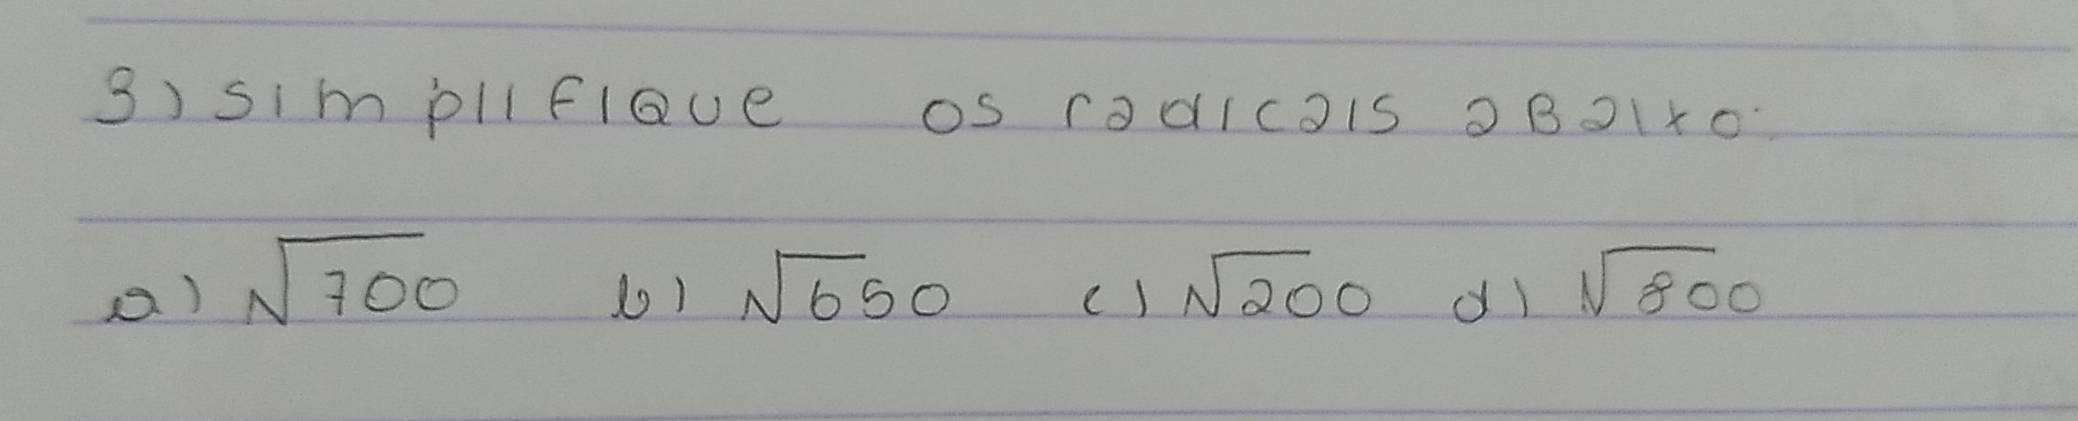 3) simplifique os radicais aBaixo:
a) √700 b) √650 c) √200 d) √800